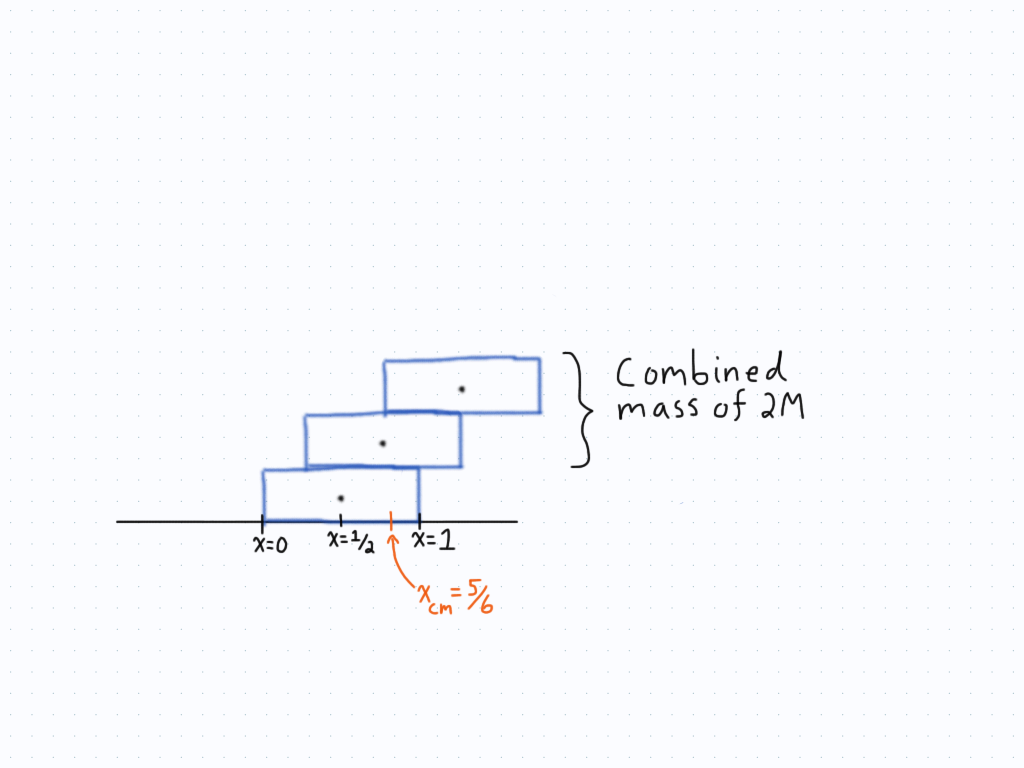 Combined
mass of 2M
x=0
x=1/2
x=1
x_cm = 5/6